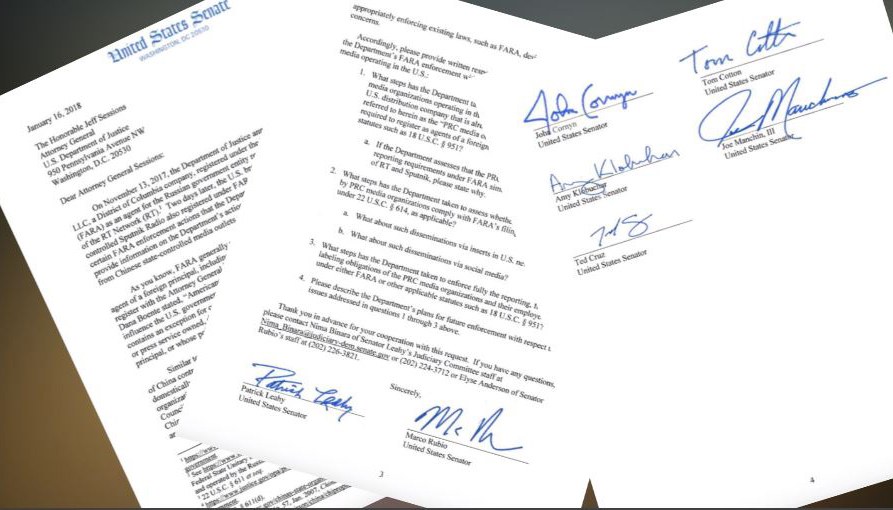 United States Senate
WASHINGTON, DC 20510
January 16, 2018
The Honorable Jeff Sessions
Attorney General
U.S. Department of Justice
950 Pennsylvania Avenue NW
Washington, D.C. 20530
Dear Attorney General Sessions:
On November 13, 2017, the Department of Justice
LLC, a District of Columbia company, registered under the
(FARA) as an agent for the Russian government entity
of the RT Network (RT).¹ Two days later, the U.S.
controlled Sputnik Radio also registered under
certain FARA enforcement actions that the
provide information on the Department's
from Chinese state-controlled media outlets
As you know, FARA generally
agent of a foreign principal, including
register with the Attorney General
Dana Boente stated, "Americans
influence the U.S. government
contains an exception for
or press service owned,
principal, or whose
Similar
of China
domestically
appropriately enforcing existing laws, such as FARA,
concerns.
Accordingly, please provide written
the Department's FARA enforcement
media operating in the U.S.:
1. What steps has the Department
media organizations operating in
U.S. distribution company that is
referred to herein as the "PRC media
required to register as agents of a foreign
statutes such as 18 U.S.C. § 951?
a. If the Department assesses that the
reporting requirements under FARA
of RT and Sputnik, please state why.
2. What steps has the Department taken to assess
by PRC media organizations comply with FARA's
under 22 U.S.C. § 614, as applicable?
a. What about such disseminations via inserts in U.S.
b. What about such disseminations via social media?
3. What steps has the Department taken to enforce fully the reporting,
labeling obligations of the PRC media organizations and their
under either FARA or other applicable statutes such as 18 U.S.C. § 951?
4. Please describe the Department's plans for future enforcement with respect
issues addressed in questions 1 through 3 above.
Thank you in advance for your cooperation with this request. If you have any questions,
please contact Nima Binara of Senator Leahy's Judiciary Committee staff at
Nima_Binara@judiciary-dem.senate.gov or (202) 224-3712 or Elyse Anderson of Senator
Rubio's staff at (202) 226-3821.
Sincerely,
Patrick Leahy
Patrick Leahy
United States Senator
Marco Rubio
United States Senator
3
John Cornyn
John Cornyn
United States Senator
Tom Cotton
Tom Cotton
United States Senator
Amy Klobuchar
Amy Klobuchar
United States Senator
Joe Manchin
Joe Manchin, III
United States Senator
Ted Cruz
United States Senator
4